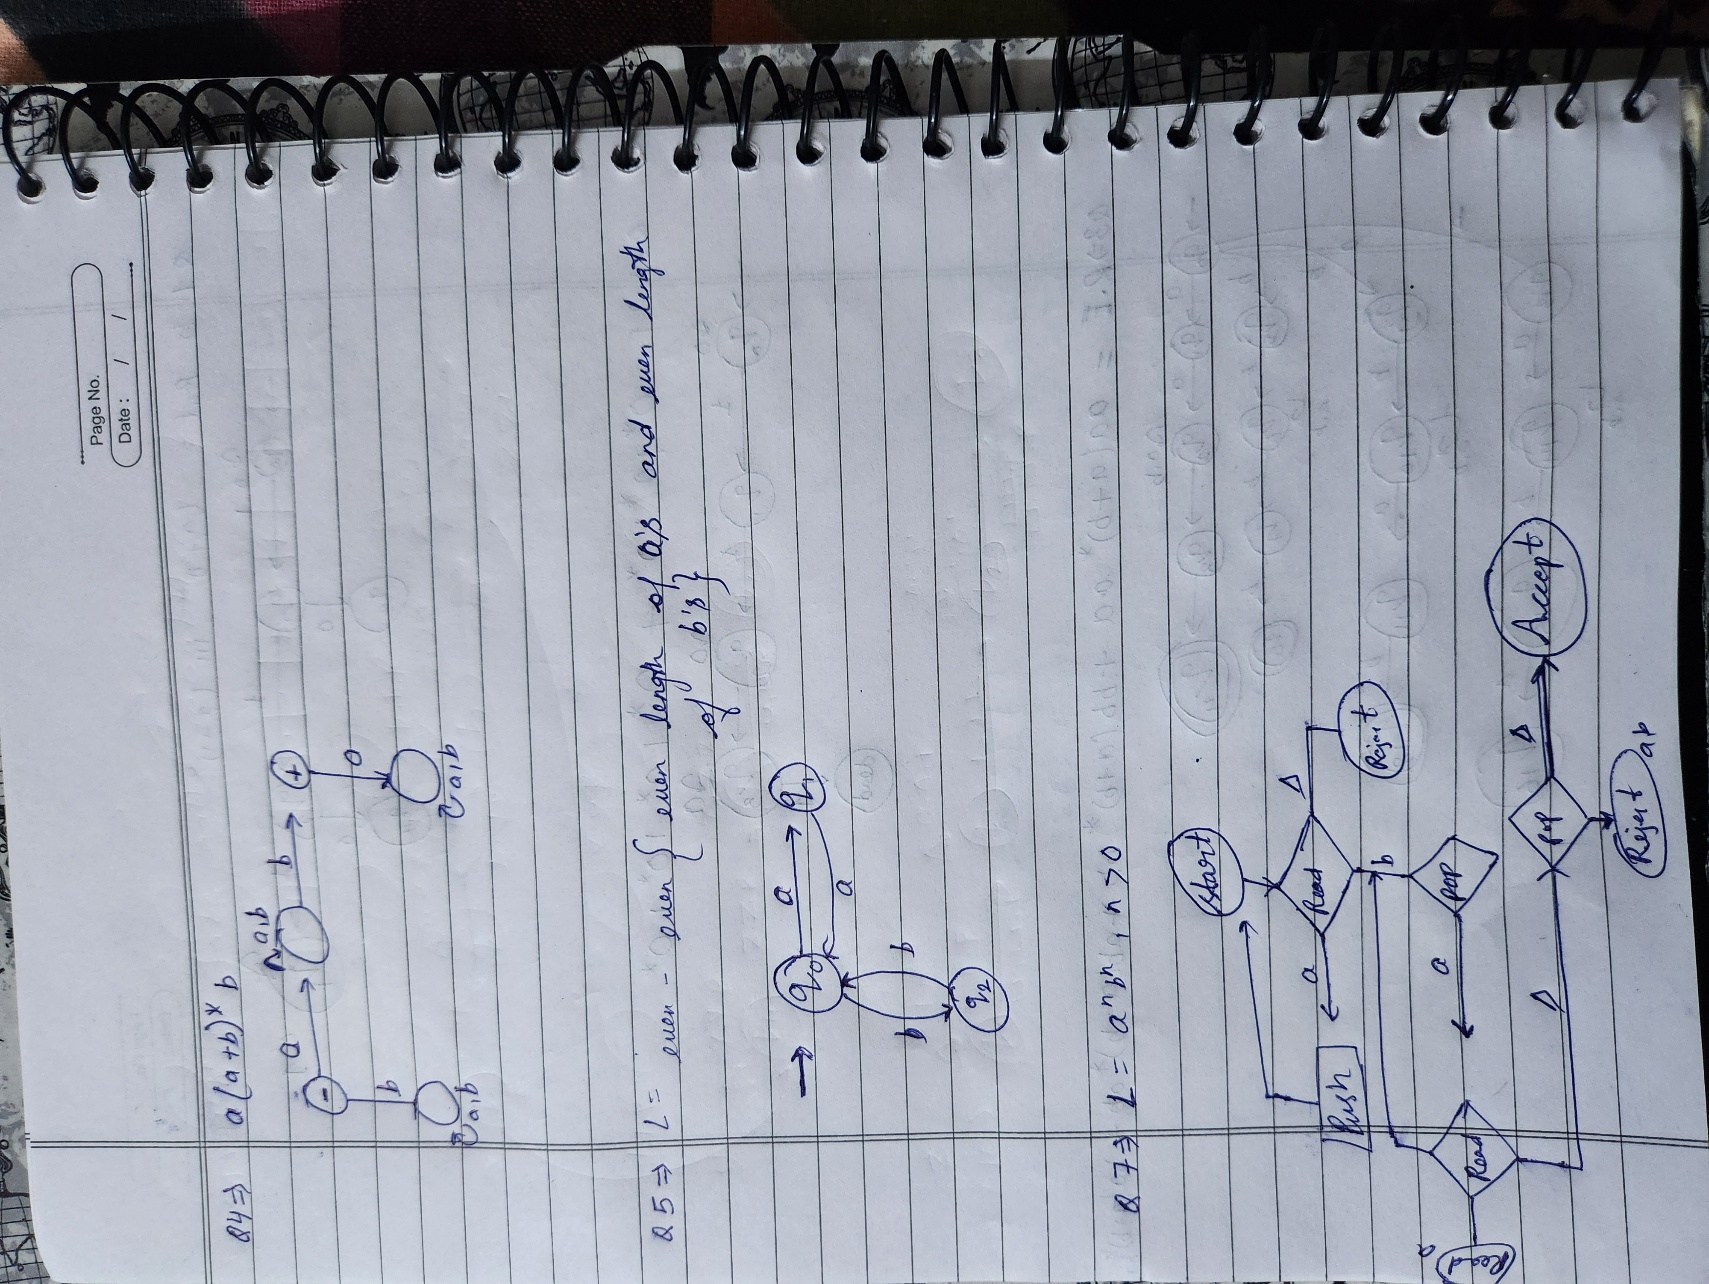 Page No.
Date : / /
Q4⇒ a(a+b)* b
a,b
- a b +
b a
a,b a,b
Q5⇒ L = even - even { even length of a's and even length
of b's }
q0 a q1
a
b b
q2
Q7⇒ L = a^n b^n, n>0
Start
Push a Read Δ
Reject
b
a POP
Read
a
Read
Δ POP Δ Accept
Reject a,b